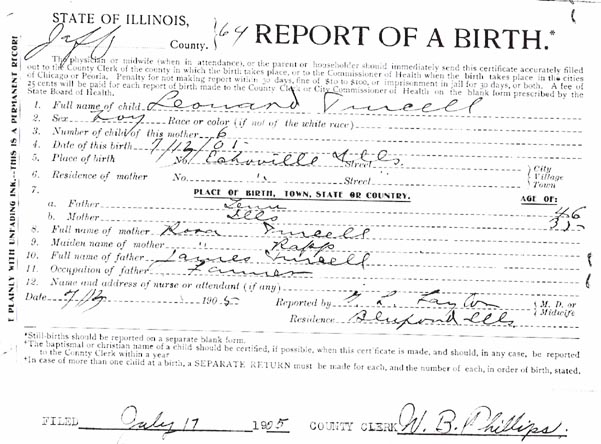 STATE OF ILLINOIS,
Jeff County. 164 REPORT OF A BIRTH.*
The physician or midwife (when in attendance), or the parent or householder should immediately send this certificate accurately filled
out to the County Clerk of the county in which the birth takes place, or to the Commissioner of Health when the birth takes place in the cities
of Chicago or Peoria. Penalty for not making report within 30 days, fine of $10 to $100, or imprisonment in jail for 30 days, or both. A fee of
25 cents will be paid for each report of birth made to the County Clerk or City Commissioner of Health on the blank form prescribed by the
State Board of Health.
1. Full name of child Leonard Purcell
2. Sex boy Race or color (if not of the white race)
3. Number of child of this mother 6
4. Date of this birth 7/12/05
5. Place of birth No. Ills Street City
6. Residence of mother No. " Street Village
Town
7. PLACE OF BIRTH, TOWN, STATE OR COUNTRY. AGE OF:
a. Father Tenn 46
b. Mother Ills
8. Full name of mother Rosa Purcell
9. Maiden name of mother " Rapp
10. Full name of father James Purcell
11. Occupation of father Farmer
12. Name and address of nurse or attendant (if any)
Date 1905 Reported by M. D. or
Midwife
Residence Ills
*Still-births should be reported on a separate blank form.
*The baptismal or christian name of a child should be certified, if possible, when this certificate is made, and should, in any case, be reported
to the County Clerk within a year
*In case of more than one child at a birth, a SEPARATE RETURN must be made for each, and the number of each, in order of birth, stated.
FILED July 17 1905 COUNTY CLERK W. B. Phillips.
T PLAINLY WITH UNFADING INK.---THIS IS A PERMANENT RECORD